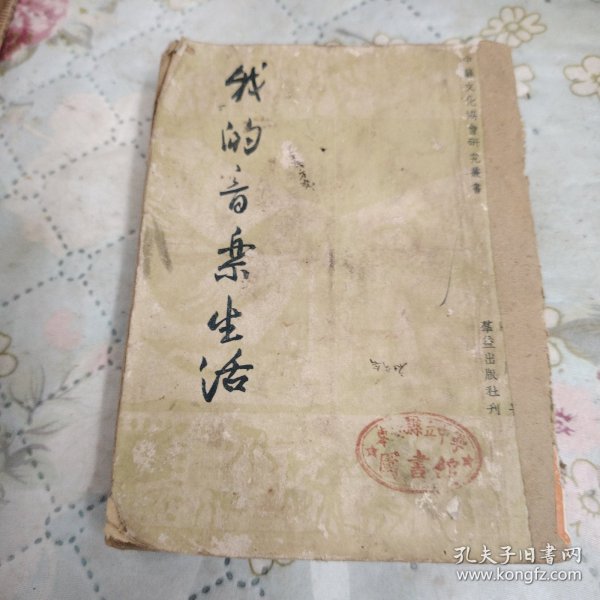 中蘇文化協會研究叢書
我的音乐生活
羣益出版社刊
縣立中學
圖書館
孔夫子旧书网
www.kongfz.com